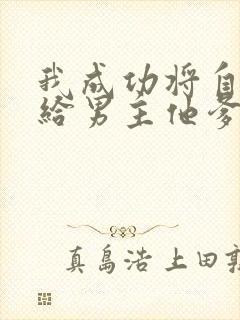 我成功将自
给男主他爹
真岛浩 上田敦